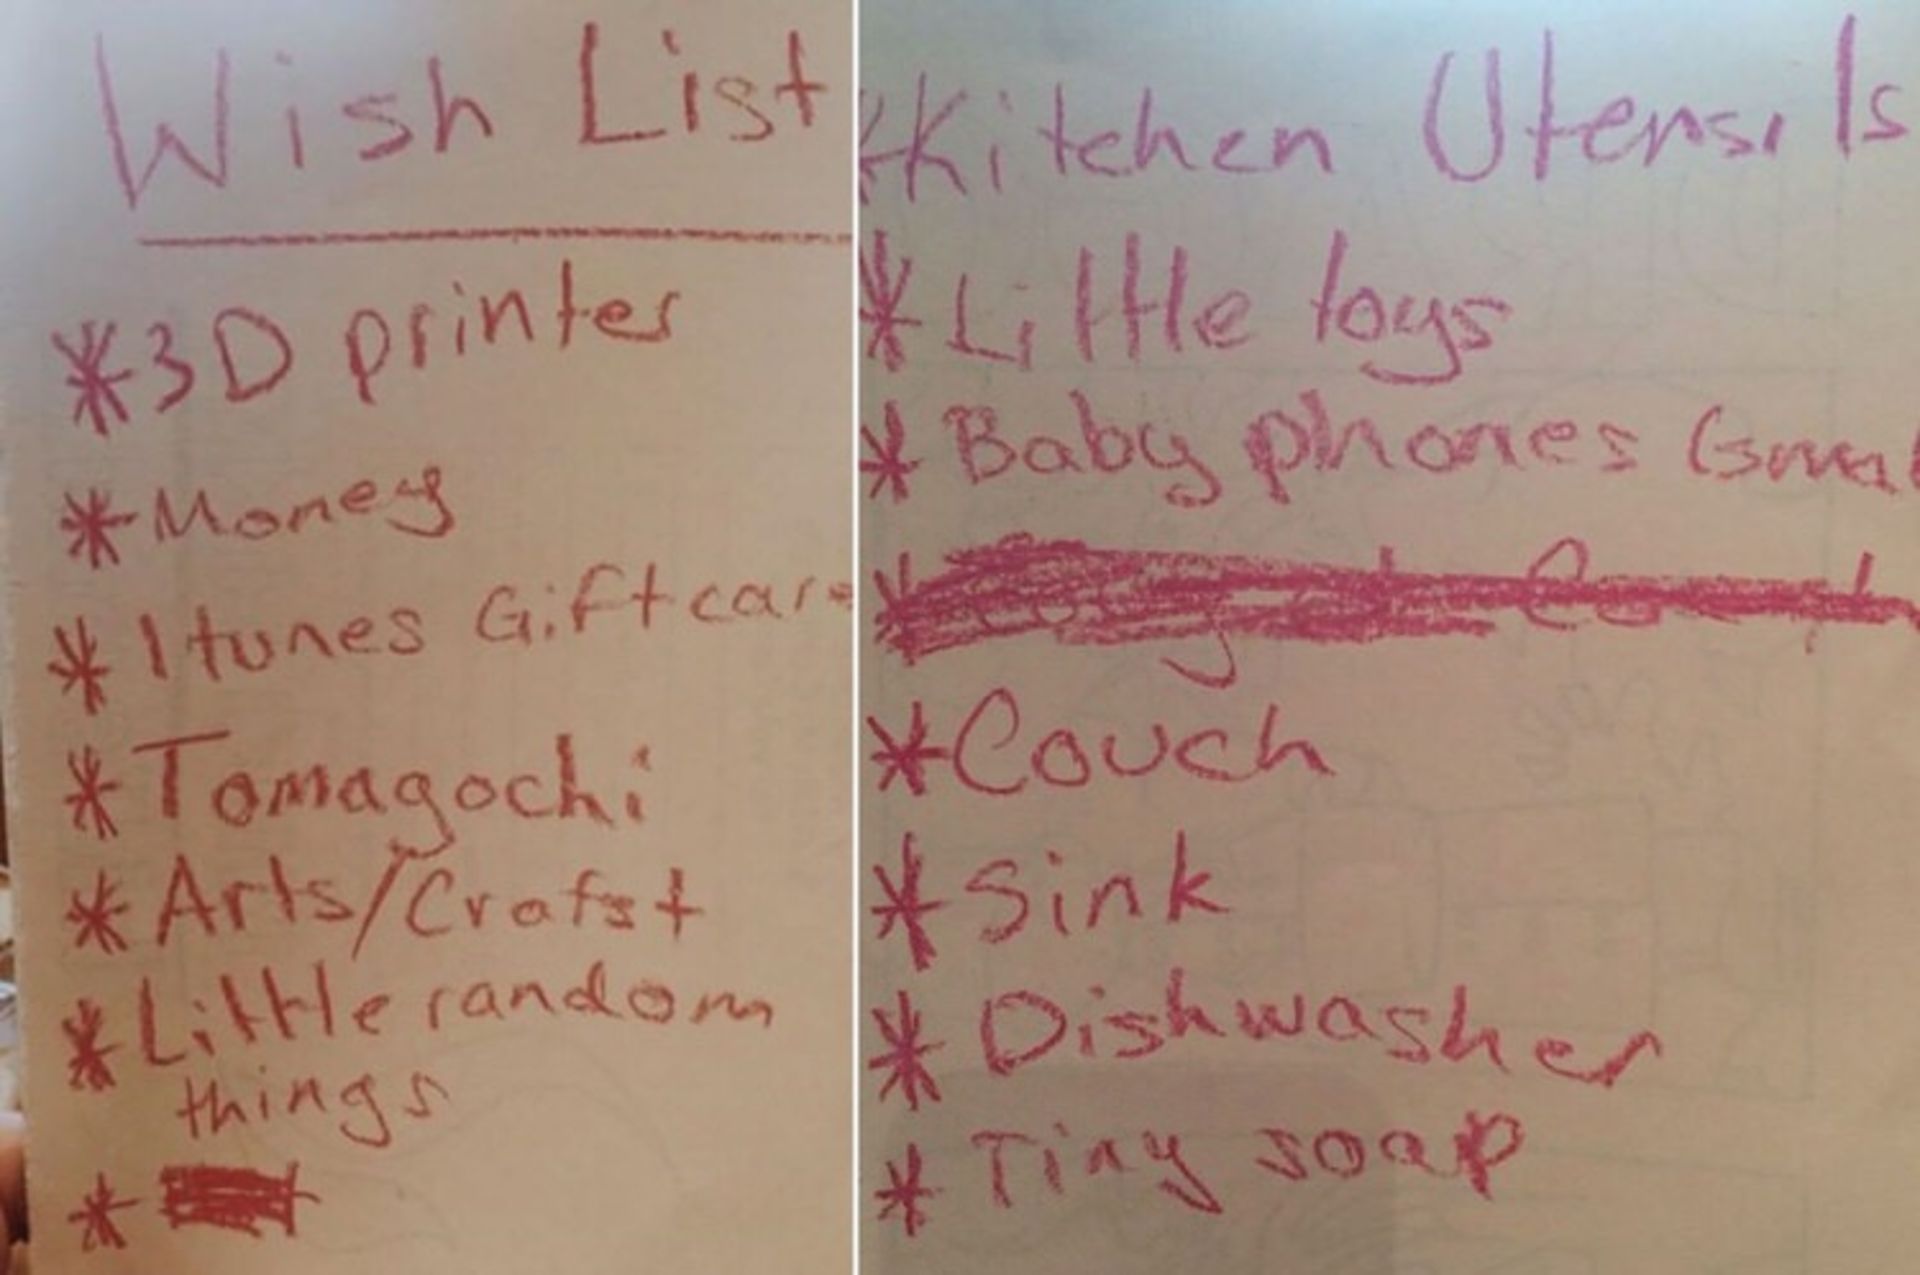 Wish List
*3D printer
*Money
*Itunes Giftcar
*Tomagochi
*Arts/Crafst
*Little random
things
*
*Kitchen Utensils
*Little toys
*Baby phones (smal
*
*Couch
*Sink
*Dishwasher
*Tiny soap